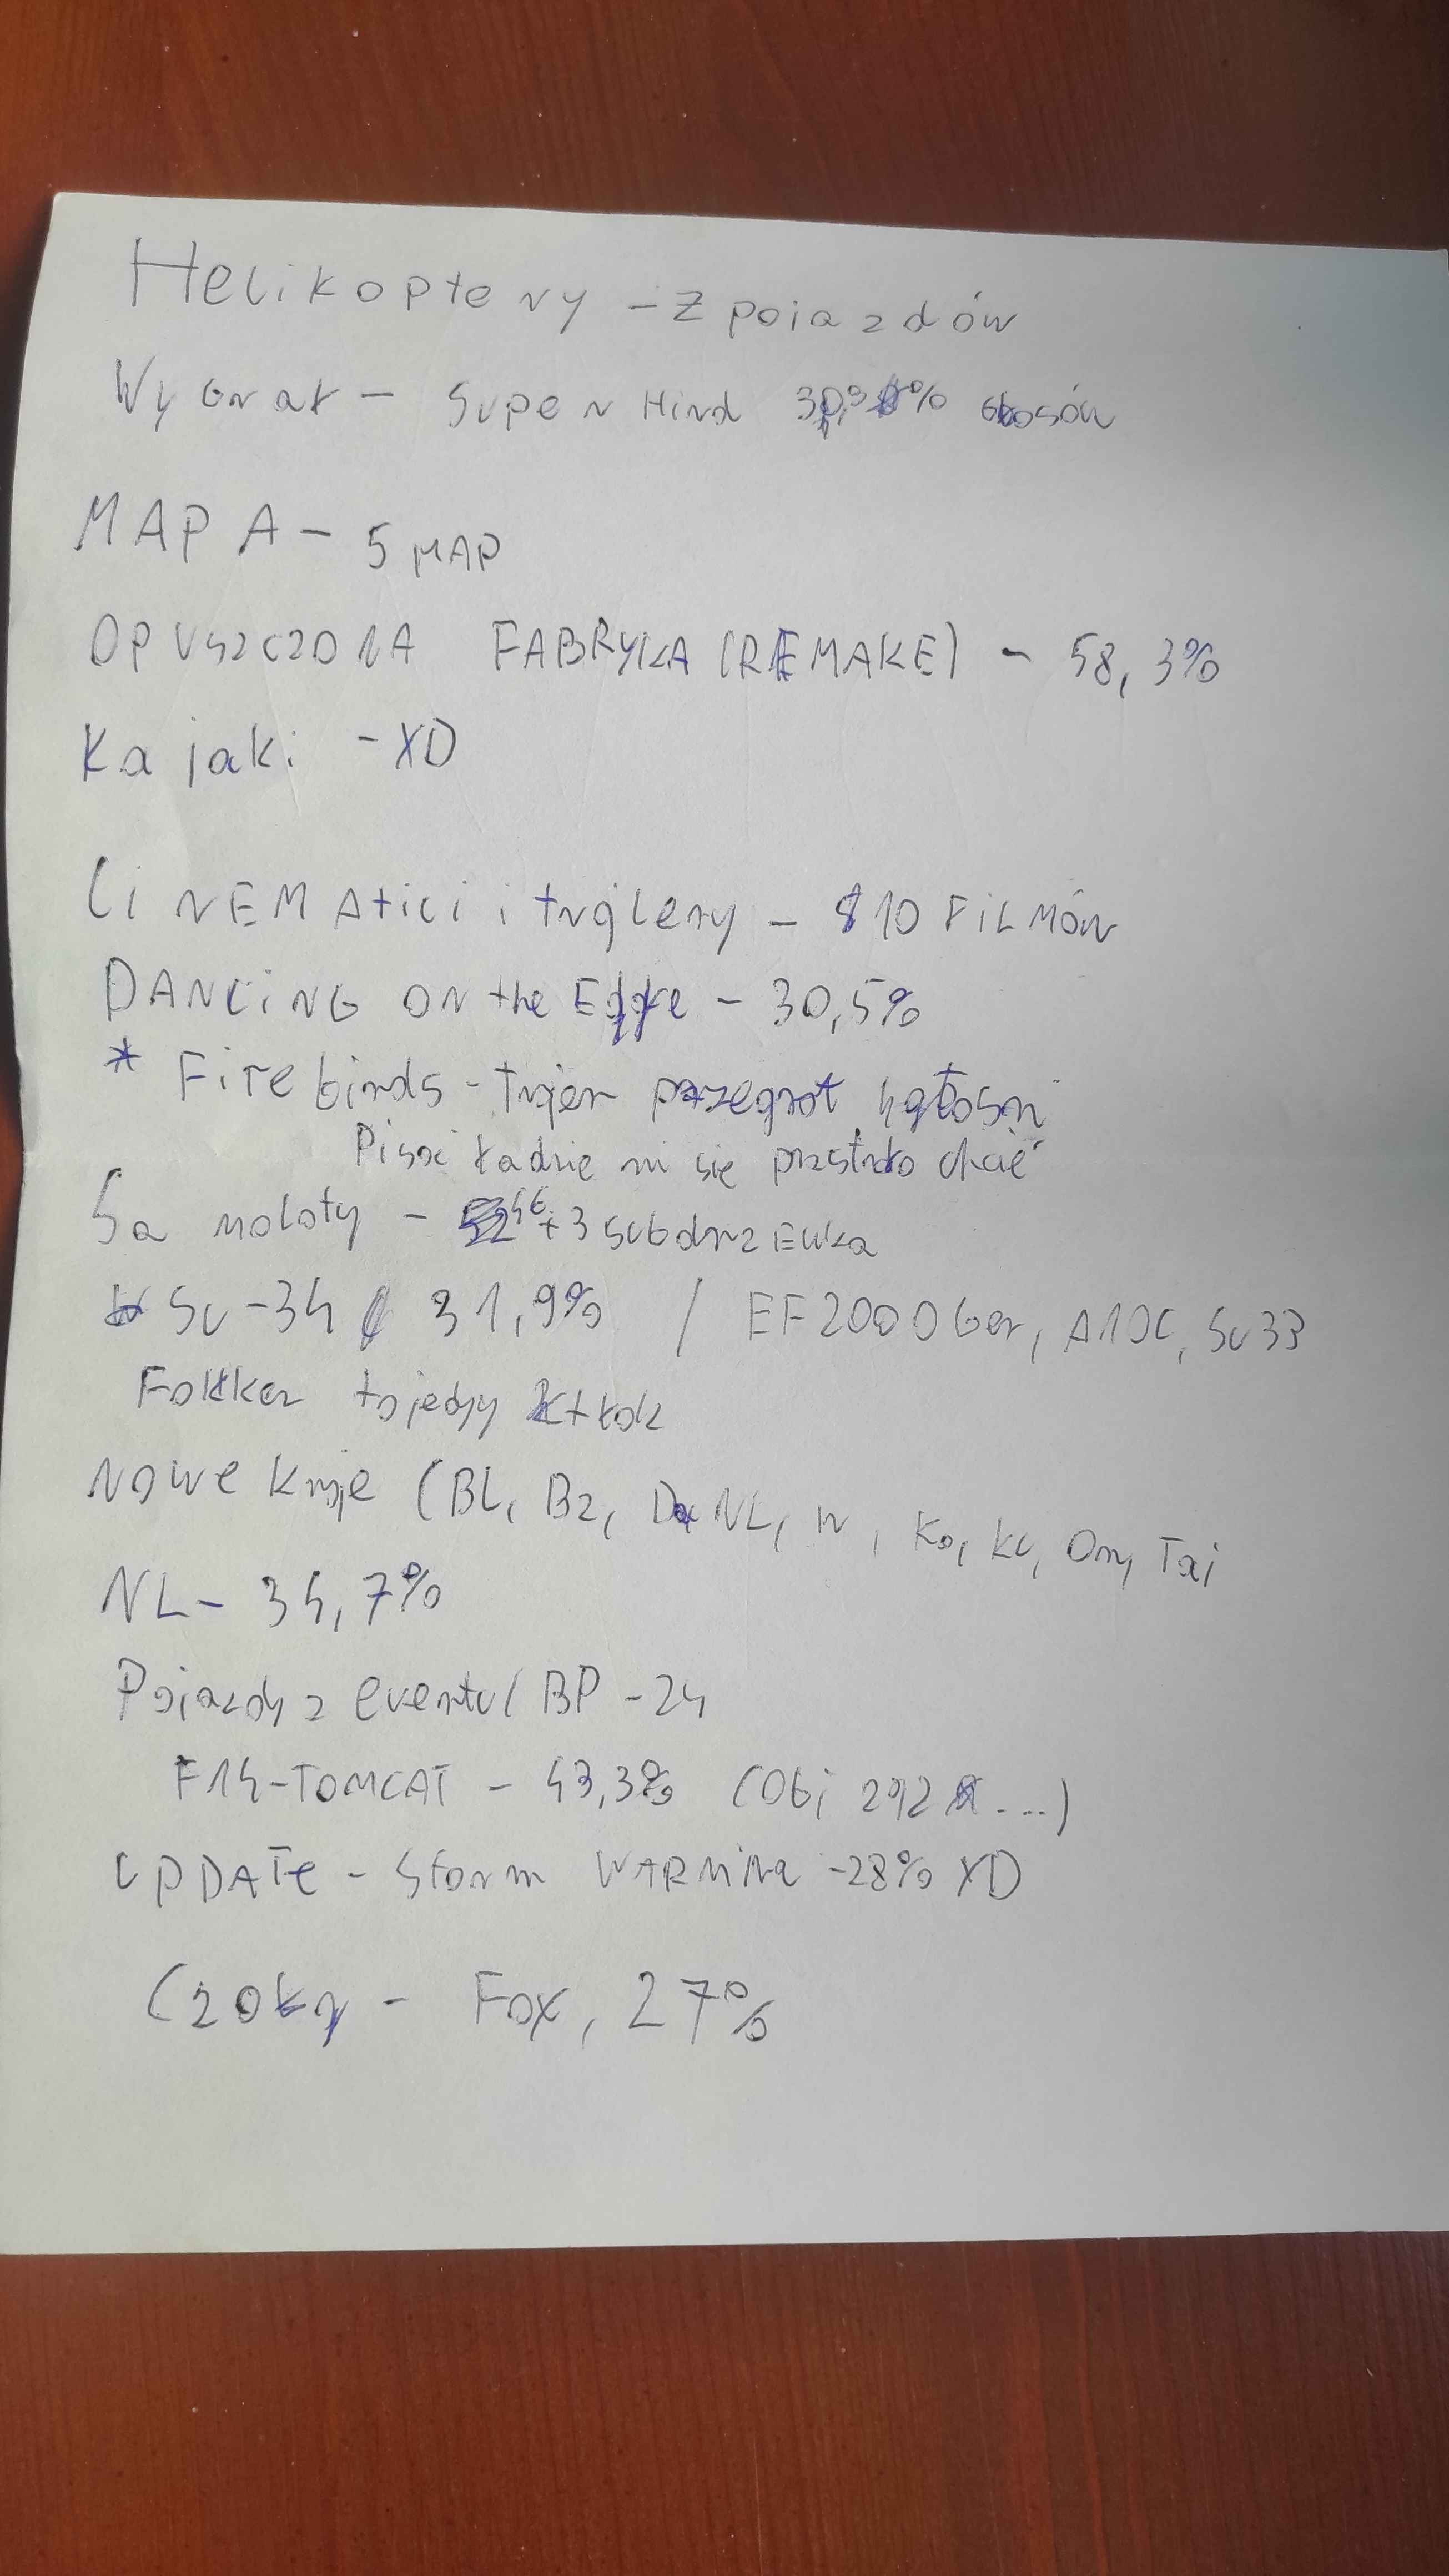 Helikoptery - Z pojazdów
Wygrał - Super Hind % Głosów
MAPA - 5 MAP
OPUSZCZONA FABRYKA (REMAKE) - 58,3%
Kajaki - XD
CiNEMAtici i trajlery - 10 FiLMów
DANCiNG ON the Edge - 30,5%
* Firebirds - trajer przegrał 4 głosami
Pisać ładnie mi się przestało chcieć
Samoloty - 46 + 3 subdrzewka
Su-34 31,9% / EF2000 Ger, A10C, Su33
Fokker to jedyny tłok
Nowe kraje (BL, Bz, Da, NL, W, Ko, Ku, Om, Taj
NL - 34,7%
Pojazdy z eventu / BP - 24
F14-TOMCAT - 43,3% (Obj 292 ....)
UPDATe - Storm WARNiNG - 28% XD
Czołgi - Fox, 27%